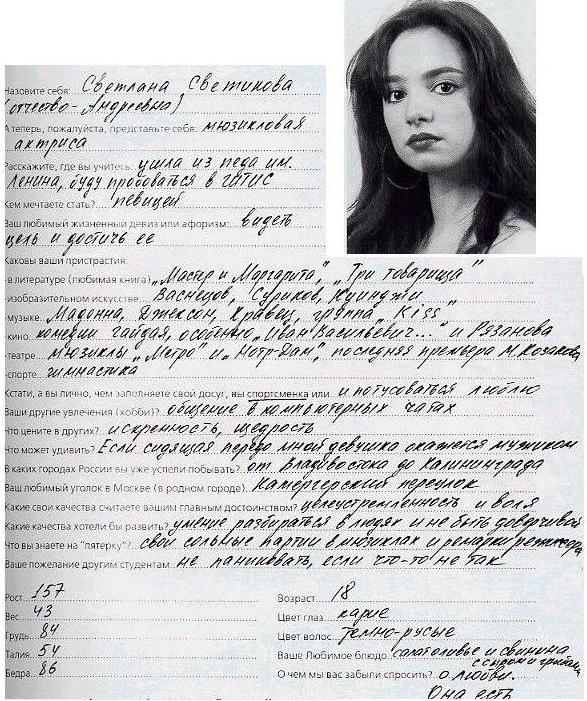 Назовите себя: Светлана Светикова
(отчество-Андреевна)
А теперь, пожалуйста, представьте себя: мюзикловая
актриса
Расскажите, где вы учитесь: ушла из педа им.
Ленина, буду пробоваться в ГИТИС
Кем мечтаете стать? певицей
Ваш любимый жизненный девиз или афоризм: видеть
цель и достичь ее
Каковы ваши пристрастия:
-в литературе (любимая книга) „Мастер и Маргарита", „Три товарища"
-изобразительном искусстве Васнецов, Суриков, Куинджи
-музыке Мадонна, Джексон, Кравец, группа „Kiss"
-кино комедии Гайдая, особенно „Иван Васильевич..." и Рязанова
-театре мюзиклы „Метро" и „Нотр-Дам", последняя премьера М. Козакова
-спорте гимнастика
Кстати, а вы лично, чем заполняете свой досуг, вы спортсменка или и потусоваться люблю
Ваши другие увлечения (хобби)? общение в компьютерных чатах
Что цените в других? искренность, щедрость
Что может удивить? Если сидящая передо мной девушка окажется мужиком
В каких городах России вы уже успели побывать? от Владивостока до Калининграда
Ваш любимый уголок в Москве (в родном городе) Камергерский переулок
Какие свои качества считаете вашим главным достоинством? целеустремленность и воля
Какие качества хотели бы развить? умение разбираться в людях и не быть доверчивой
Что вы знаете на "пятерку"? свои сольные партии в мюзиклах и ремарки режиссера
Ваше пожелание другим студентам не паниковать, если что-то не так
Рост 157
Вес 43
Грудь 84
Талия 54
Бедра 86
Возраст 18
Цвет глаз карие
Цвет волос темно-русые
Ваше Любимое блюдо салат оливье и свинина
с сыром и грибами
О чем мы вас забыли спросить? о любви.
Она есть